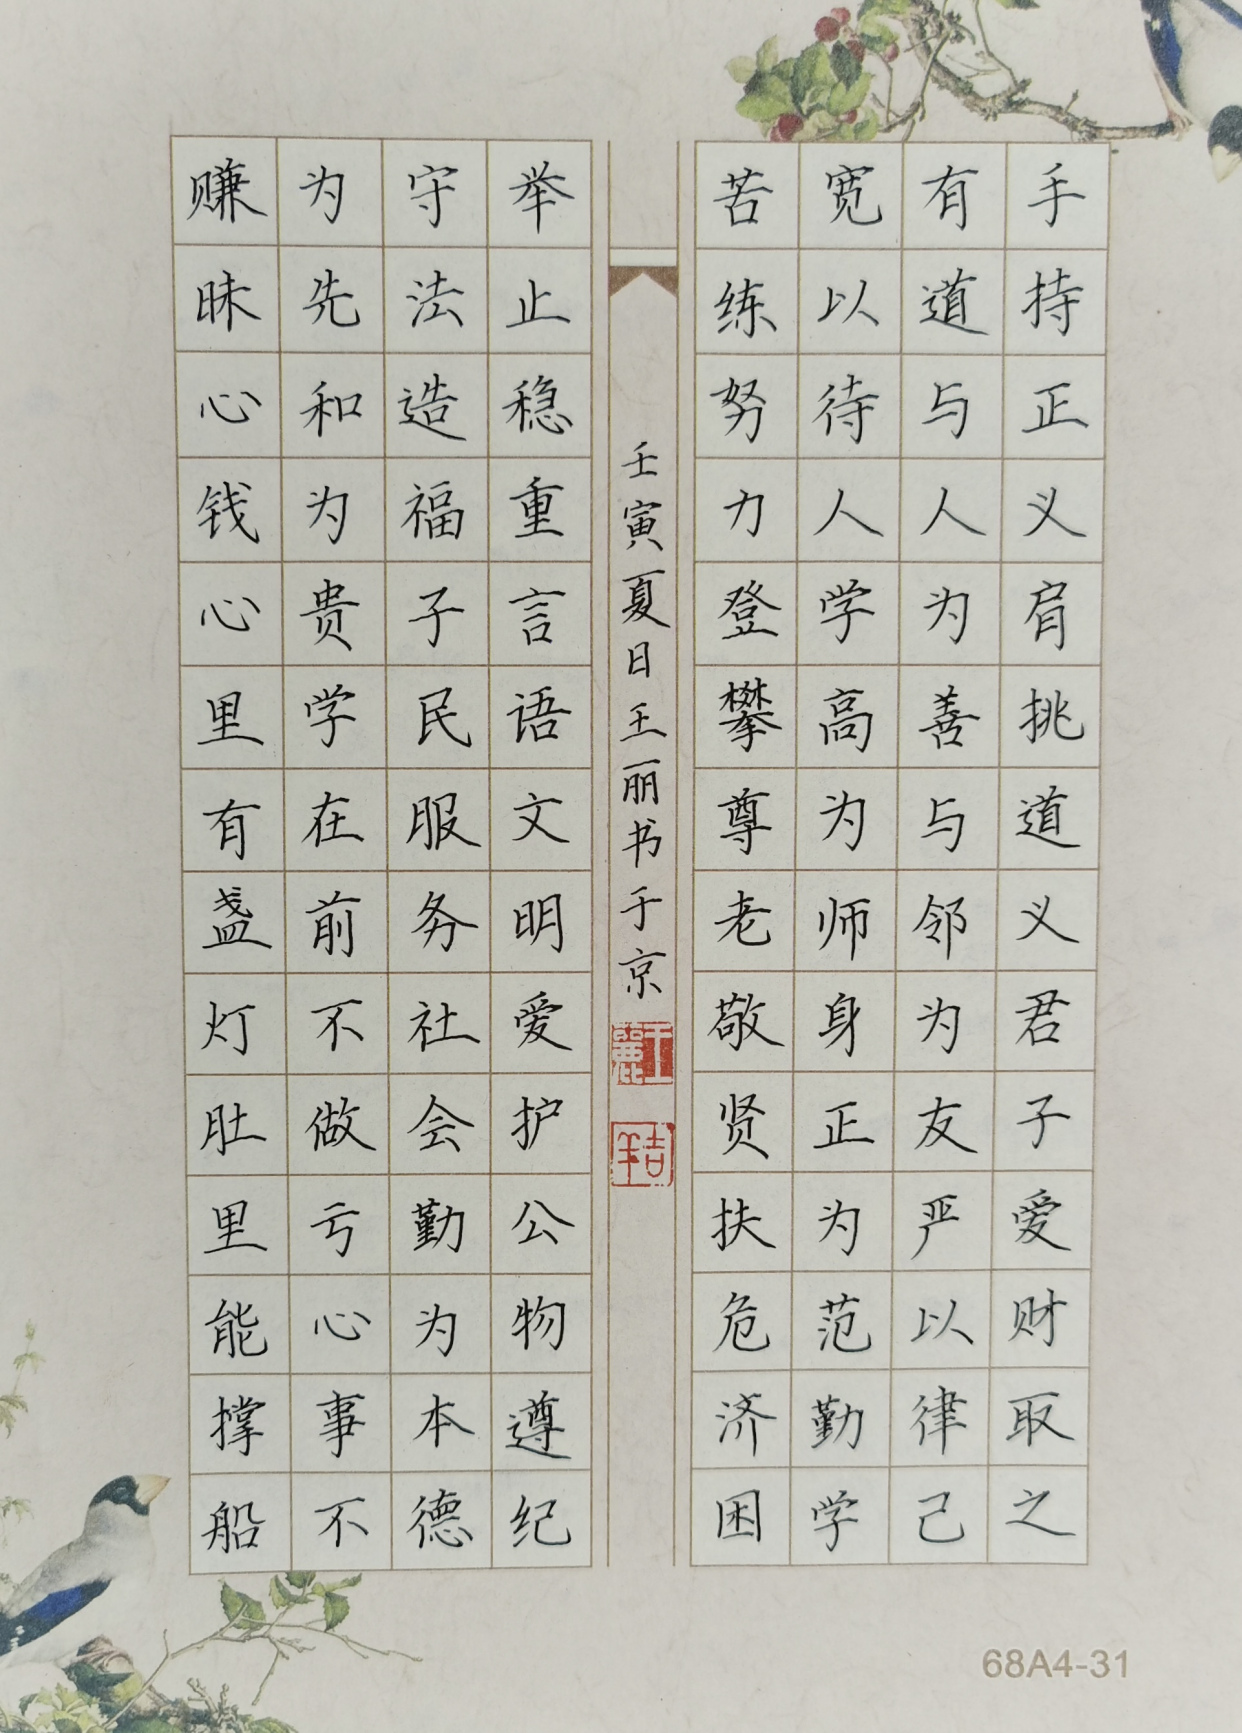 手持正义肩挑道义君子爱财取之
有道与人为善与邻为友严以律己
宽以待人学高为师身正为范勤学
苦练努力登攀尊老敬贤扶危济困
壬寅夏日王丽书于京
王麗
吉羊
举止稳重言语文明爱护公物遵纪
守法造福子民服务社会勤为本德
为先和为贵学在前不做亏心事不
赚昧心钱心里有盏灯肚里能撑船
68A4-31